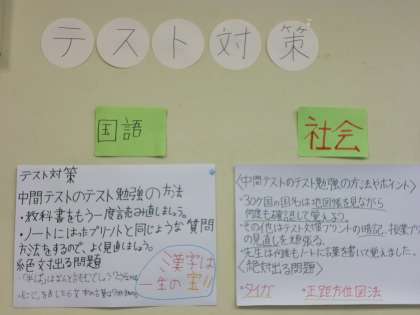 テスト対策
国語
社会
テスト対策
中間テストのテスト勉強の方法
・教科書をもう一度読み直しましょう。
・ノートにはプリントと同じような質問
方法をするので、よく見直しましょう。
絶対出る問題
漢字は
一生の宝!!
〈中間テストのテスト勉強の方法やポイント〉
・30ヶ国の国名は地図帳を見ながら
何度も確認して覚えよう。
・その他はテスト対策プリントの暗記、授業プ
の見直しを頑張る。
・先生は何度もノートに言葉を書いて覚えました。
〈絶対出る問題〉
・タイガ ・正距方位図法